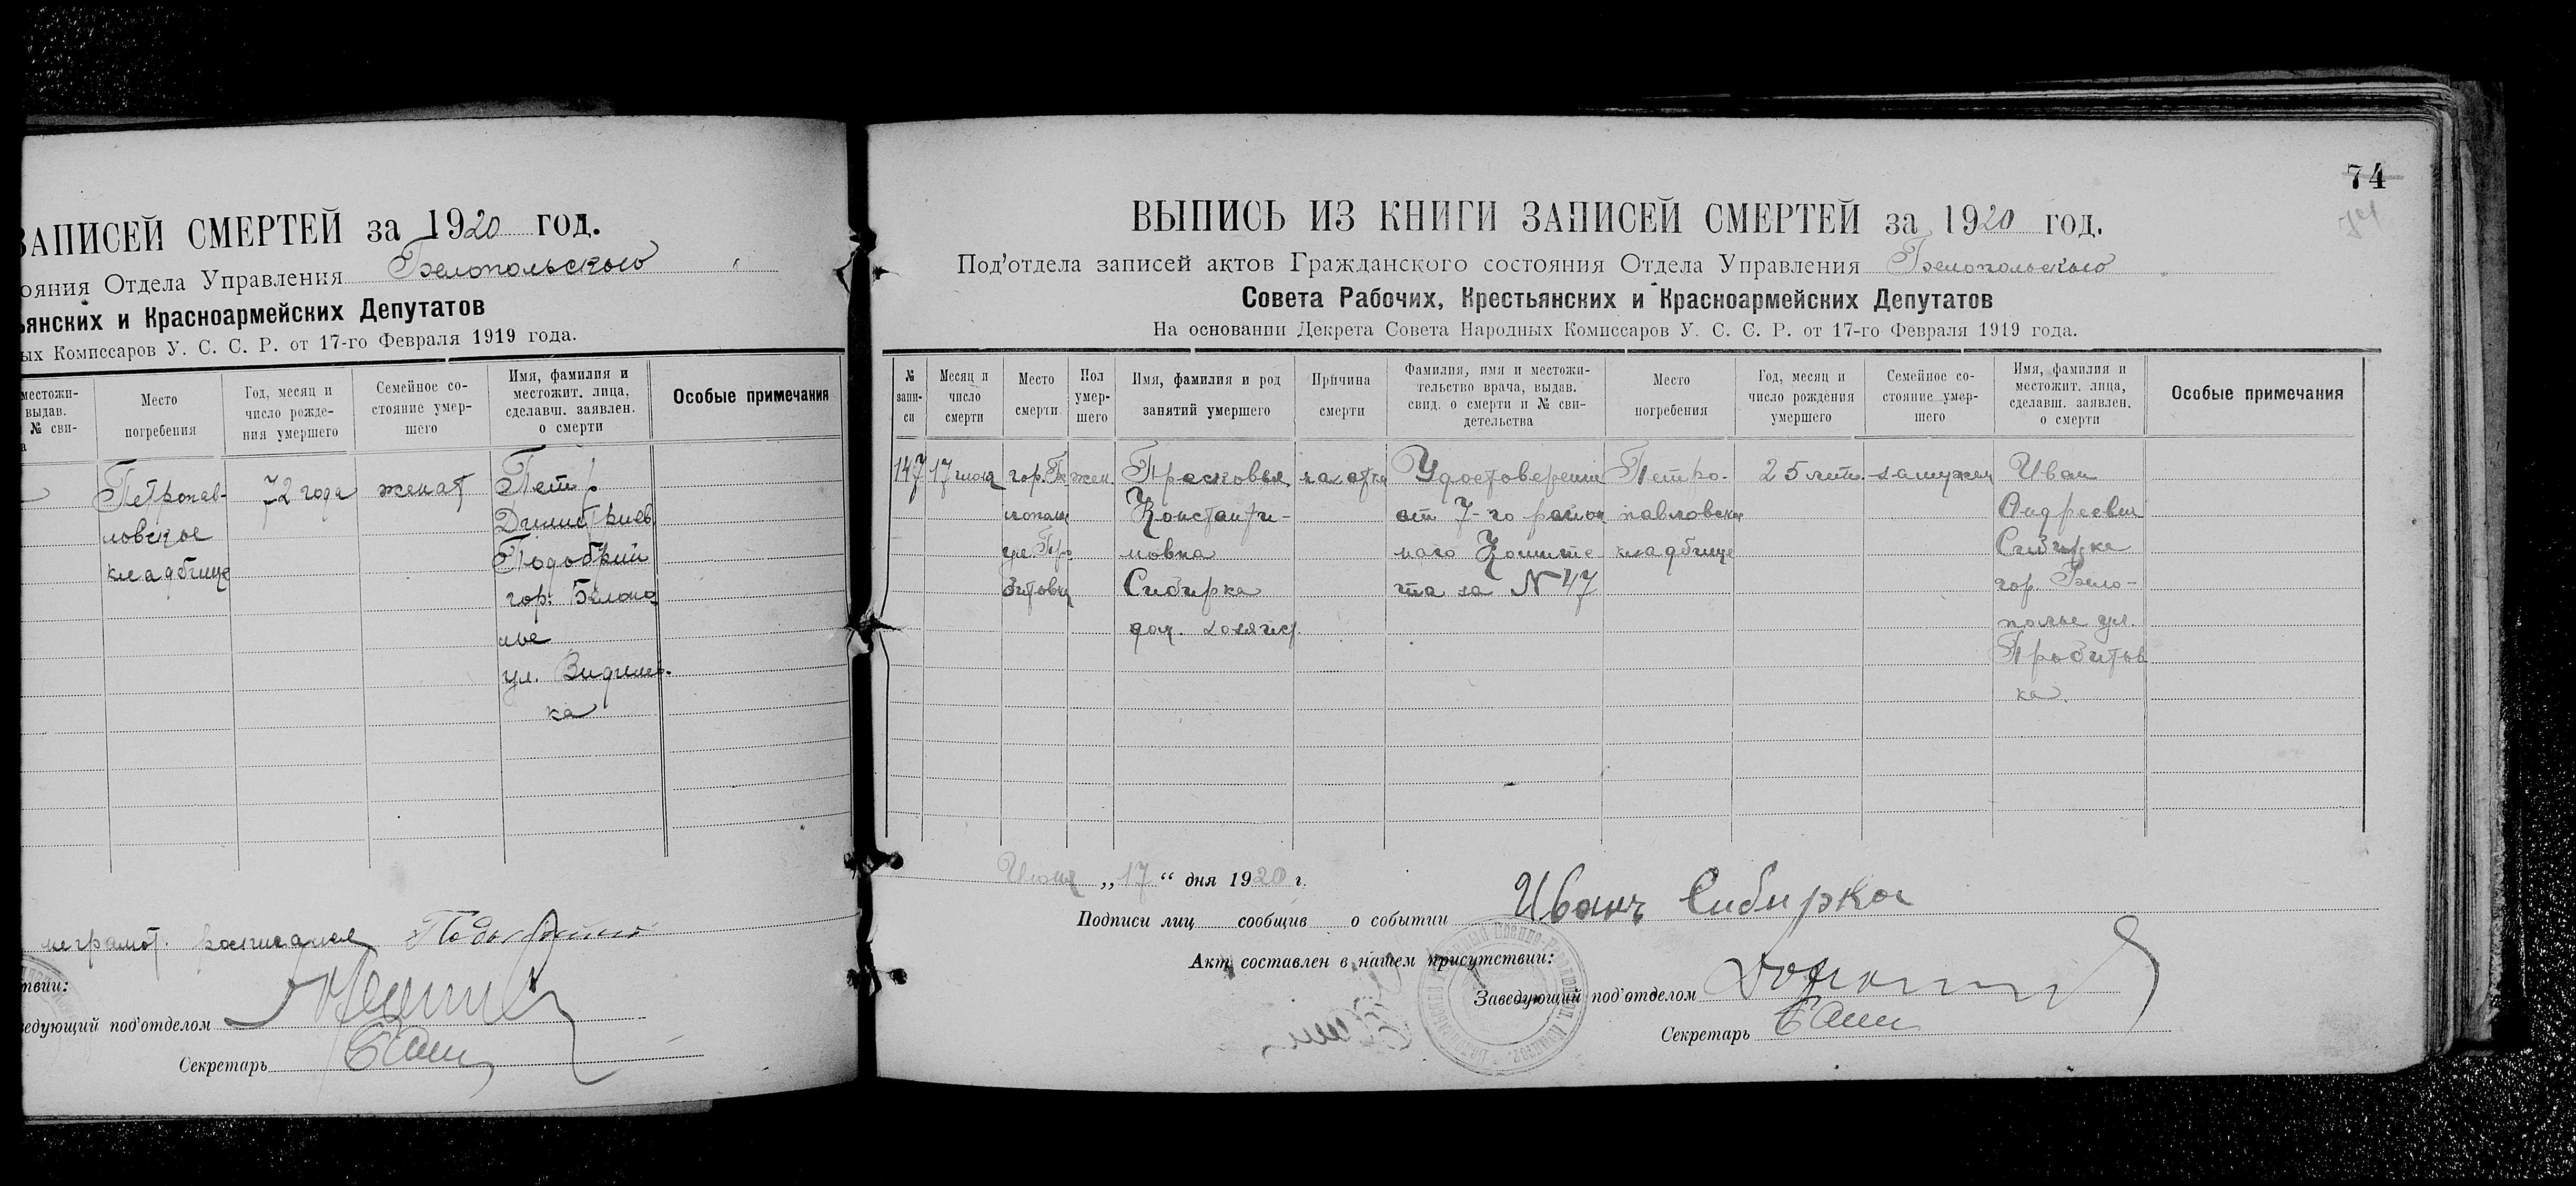 ЗАПИСЕЙ СМЕРТЕЙ за 1920 год.
ояния Отдела Управления Белопольского
ьянских и Красноармейских Депутатов
ых Комиссаров У. С. С. Р. от 17-го Февраля 1919 года.
местожи-
выдав.
№ сви-
а
Место
погребения
Год, месяц и
число рожде-
ния умершего
Семейное со-
стояние умер-
шего
Имя, фамилия и
местожит. лица,
сделавш. заявлен.
о смерти
Особые примечания
Петропав-
ловское
кладбище
72 года
женат
Петр
Димитриев
гор. Белопо
лье
ул.
ка
неграмот. расписался
твии:
ведующий под'отделом
Секретарь
74
74
ВЫПИСЬ ИЗ КНИГИ ЗАПИСЕЙ СМЕРТЕЙ за 1920 год.
Под'отдела записей актов Гражданского состояния Отдела Управления Белопольского
Совета Рабочих, Крестьянских и Красноармейских Депутатов
На основании Декрета Совета Народных Комиссаров У. С. С. Р. от 17-го Февраля 1919 года.
№
запи-
си
Месяц и
число
смерти
Место
смерти
Пол
умер-
шего
Имя, фамилия и род
занятий умершего
Причина
смерти
Фамилия, имя и местожи-
тельство врача, выдав.
свид. о смерти и № сви-
детельства
Место
погребения
Год, месяц и
число рождения
умершего
Семейное со-
стояние умер-
шего
Имя, фамилия и
местожит. лица,
сделавш. заявлен.
о смерти
Особые примечания
147
17 июня
гор. Бе
лополье
ул. Про
битовка
жен.
Прасковья
Константи-
новна
Сибирка
дом. хозяйст.
чахотка
Удостоверение
от 7-го район
наго Комите
та за № 47
Петро-
павловское
кладбище
25 лет
замужем
Иван
Андреевич
Сибирка
гор. Бело-
полье ул.
Пробитов
ка
Июня „17“ дня 1920 г.
Подписи лиц сообщив о событии Иванъ Сибирка
Акт составлен в нашем присутствии:
Заведующий под'отделом
Секретарь